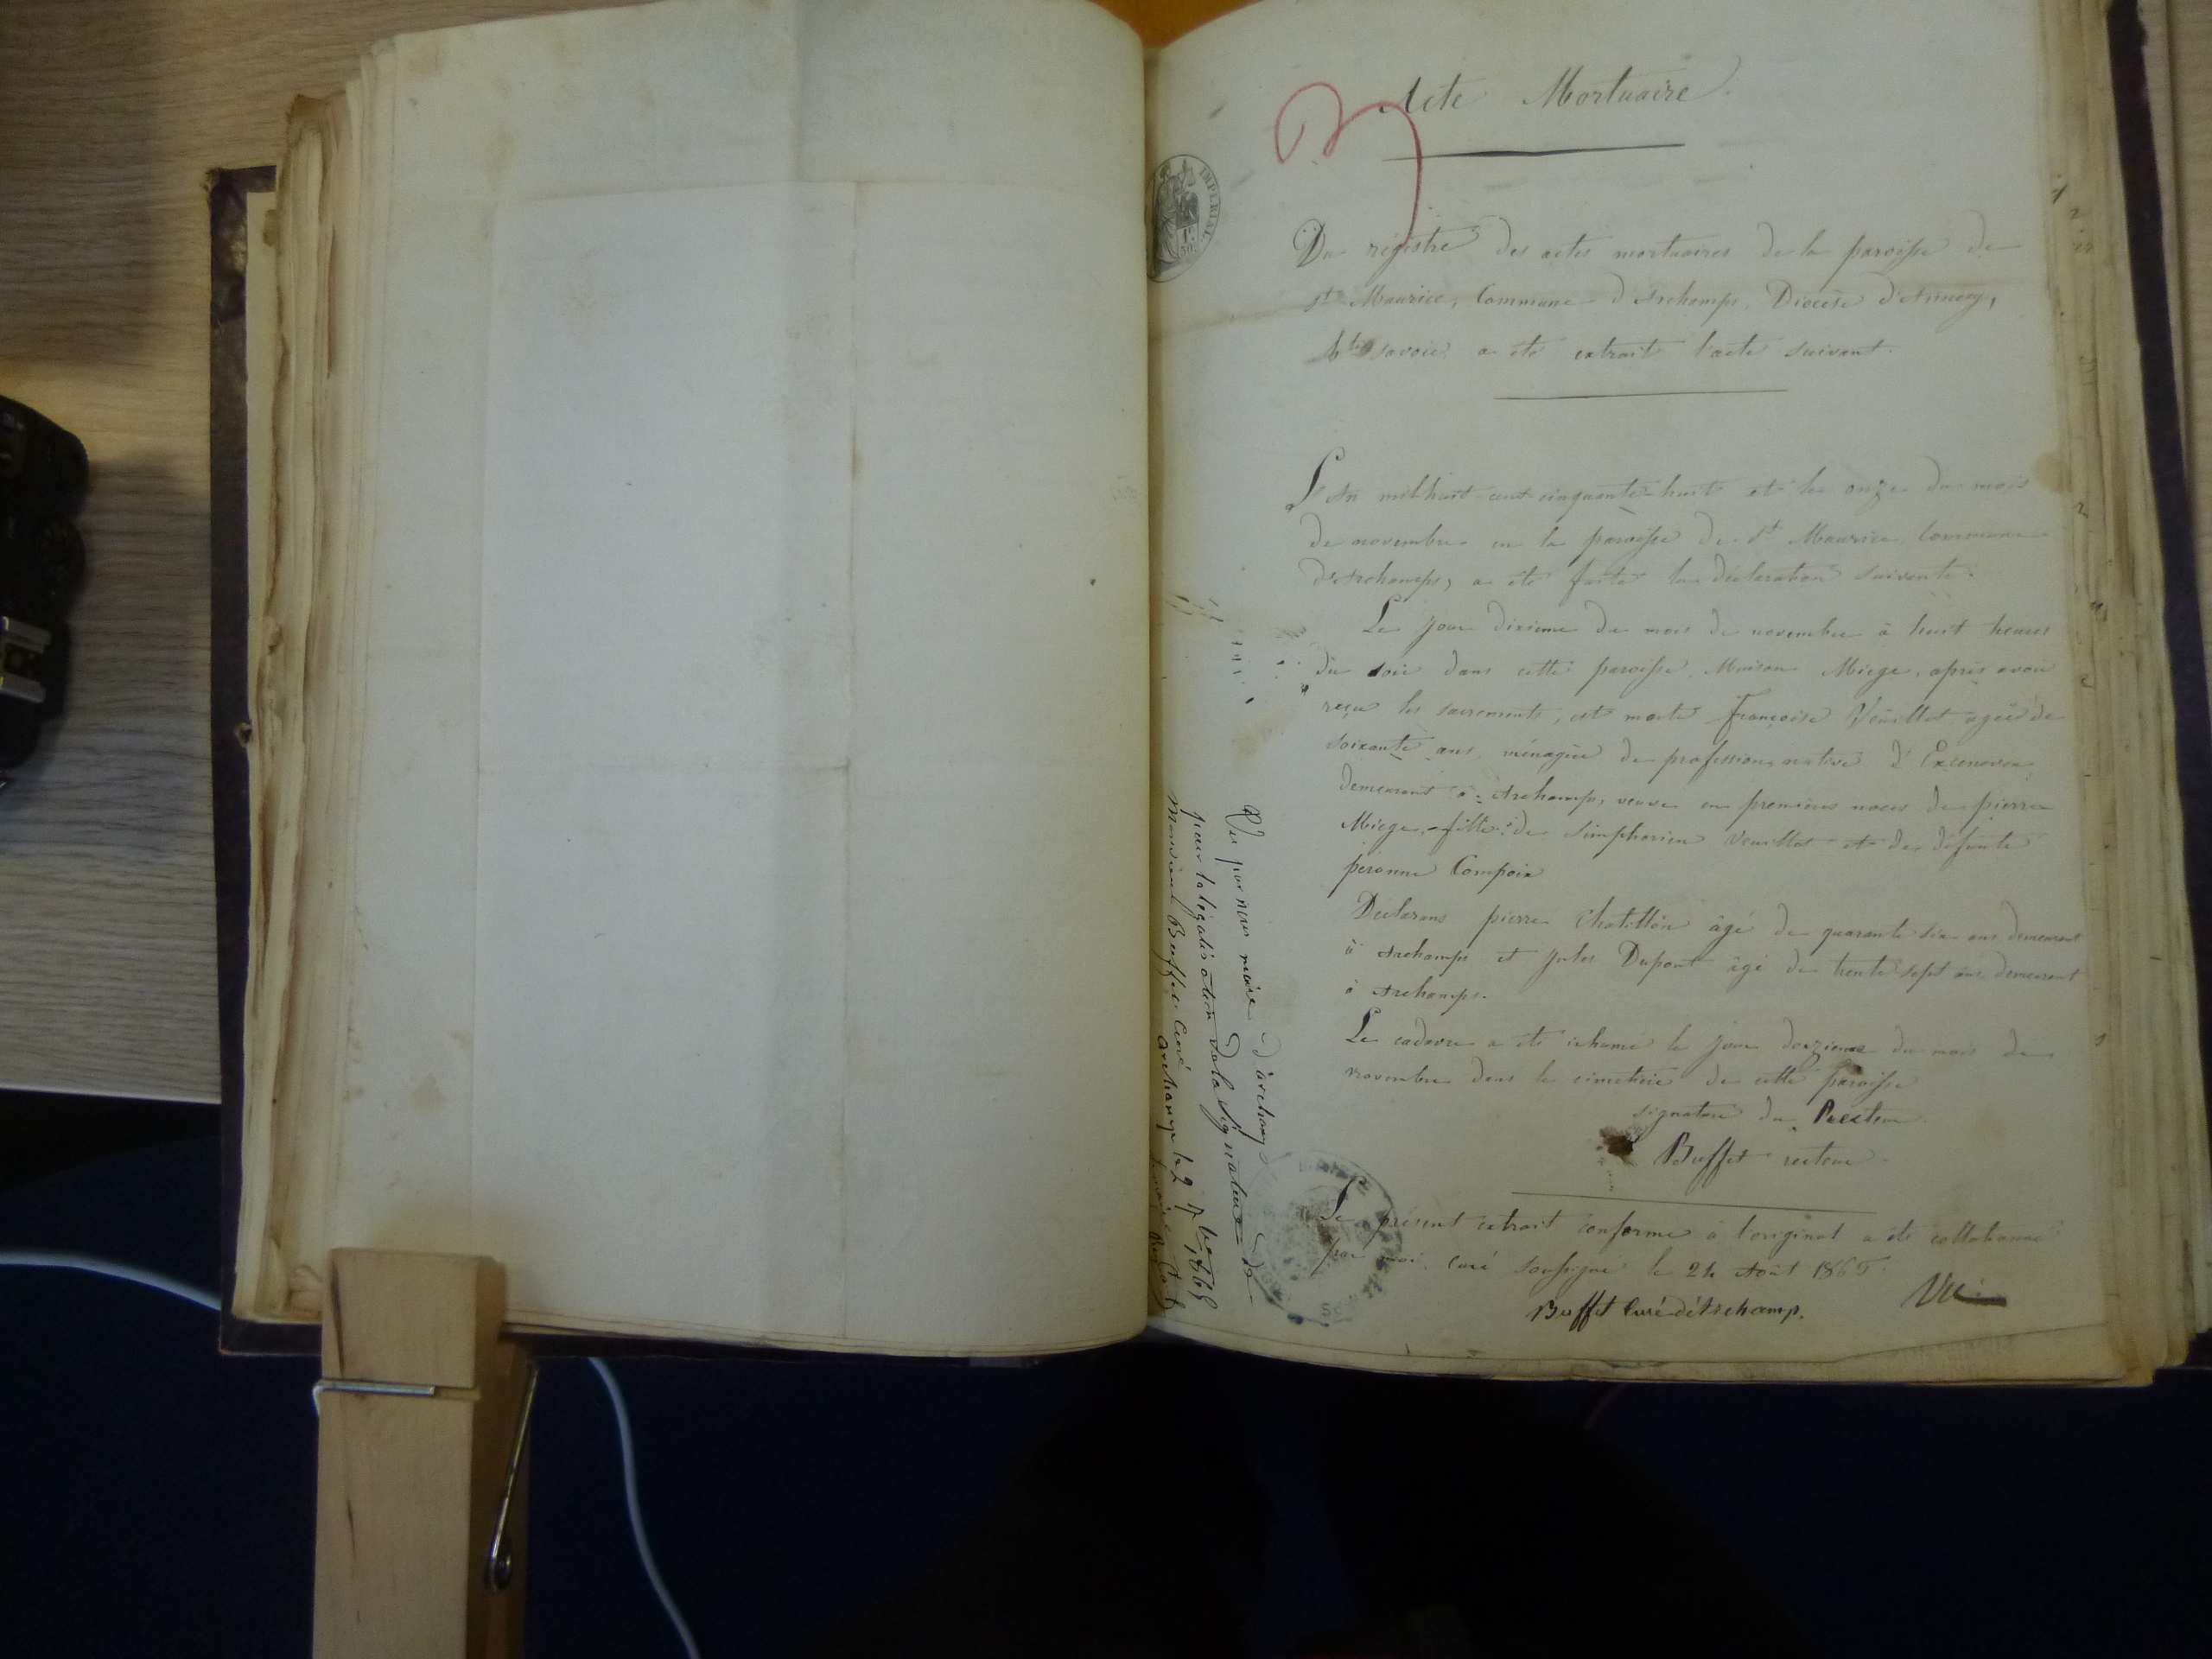 Acte Mortuaire.
IMPERIAL
1F
50
Du régistre des actes mortuaires de la paroisse de
St Maurice, Commune d'Archamps, Diocèse d'Annecy,
hte savoie, a été extrait l'acte suivant.
L'An mil huit cent cinquante-huit et le onze du mois
de novembre en la paroisse de St Maurice Commune
d'Archamps, a été faite la déclaration suivante.
Le jour dixieme du mois de novembre à huit heures
du soir dans cette paroisse Maison Miege, après avoir
reçu les sacrements, est morte Françoise Veuillet agée de
soixante ans, ménagère de profession, native d'Excenevex,
demeurant à Archamps, veuve en premières noces de pierre
Miege, fille de Simphorien Veuillet et de défunte
peronne Compoix
Déclarans pierre Chatillon âgé de quarante six ans demeurant
à Archamps et Jules Dupont âgé de trente sept ans demeurant
à Archamps.
Le cadavre a été inhumé le jour douzieme du mois de
novembre dans le cimetière de cette paroisse
signature du Recteur
Buffet recteur
Le présent extrait conforme à l'original a été collationné
par moi, curé soussigné le 24 Août 1865.
Buffet Curé d'Archamp.
Vu par nous maire d'archamp
pour la légalisation de la Signature de
Monsieur Buffet Curé
archamp le 2 7bre 1865